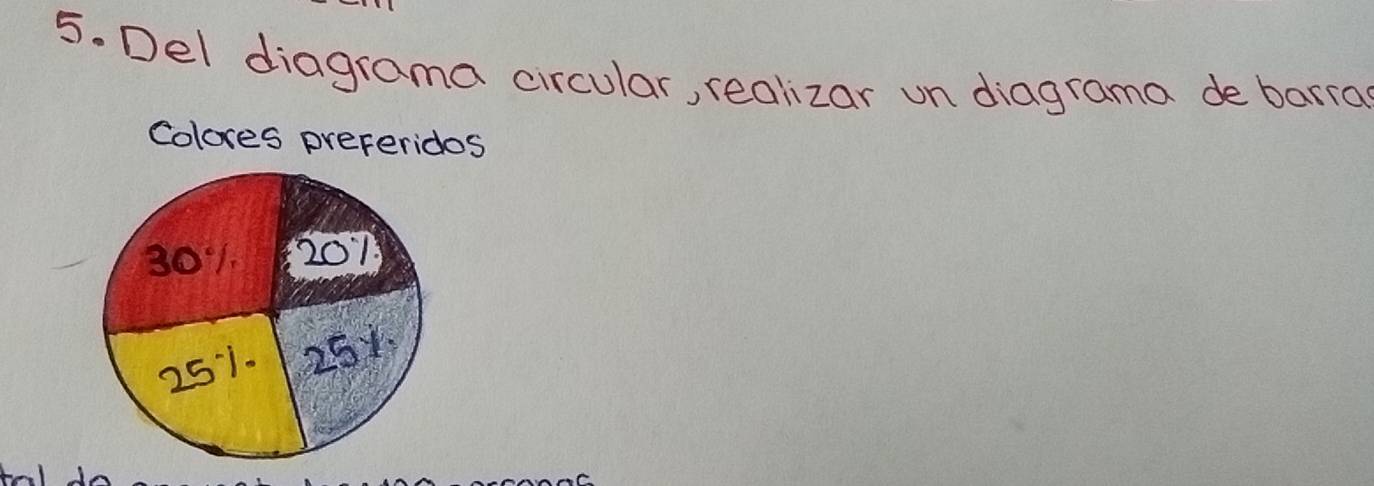 5. Del diagrama circular, realizar un diagrama de barras
Colores preferidos
30%
20%
25%
25%